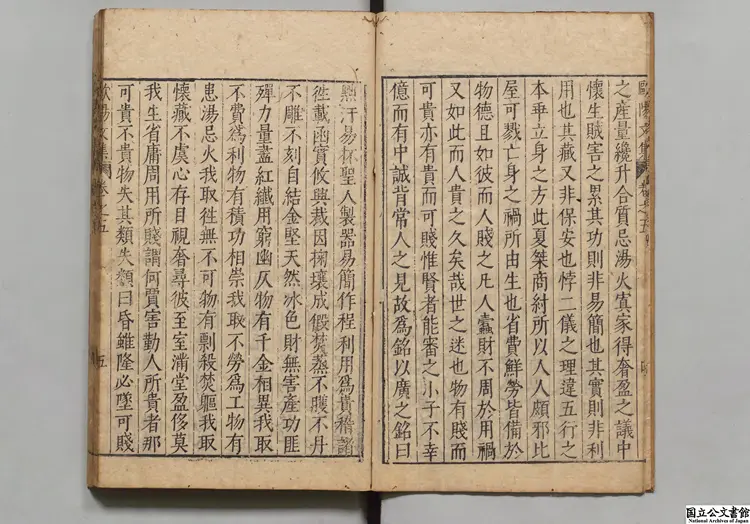 之産量纔升合質忌湯火寘家得奢盈之議中
懷生賊害之累其功則非易簡也其實則非利
用也其藏又非保安也悖二儀之理違五行之
本垂立身之方此夏桀商紂所以人人頗邪比
屋可戮亡身之禍所由生也省費鮮勞皆備於
物德且如彼而人賤之凡人蠹財不周於用禍
又如此而人貴之久矣哉世之迷也物有賤而
可貴亦有貴而可賤惟賢者能審之小子不幸
億而有中誠背常人之見故爲銘以廣之銘曰
汙易抔聖人製器易簡作程利用爲貴稽諸
徃載函實攸與裁因掬壤成假焚蒸不雘不丹
不雕不刻自結金堅天然冰色財無害產功匪
殫力量蓋紅纖用窮幽仄物有千金相異我取
不費爲利物有積功相崇我取不勞爲工物有
患湯忌火我取徃無不可物有剽殺焚軀我取
懷藏不虞心存目視奢尋彼至室滿堂盈侈莫
我生省庸周用所賤謂何賈害勤人所貴者那
可貴不貴物失其類失類曰昏雖隆必墜可賤
歐陽文集 卷之五
五
国立公文書館
National Archives of Japan